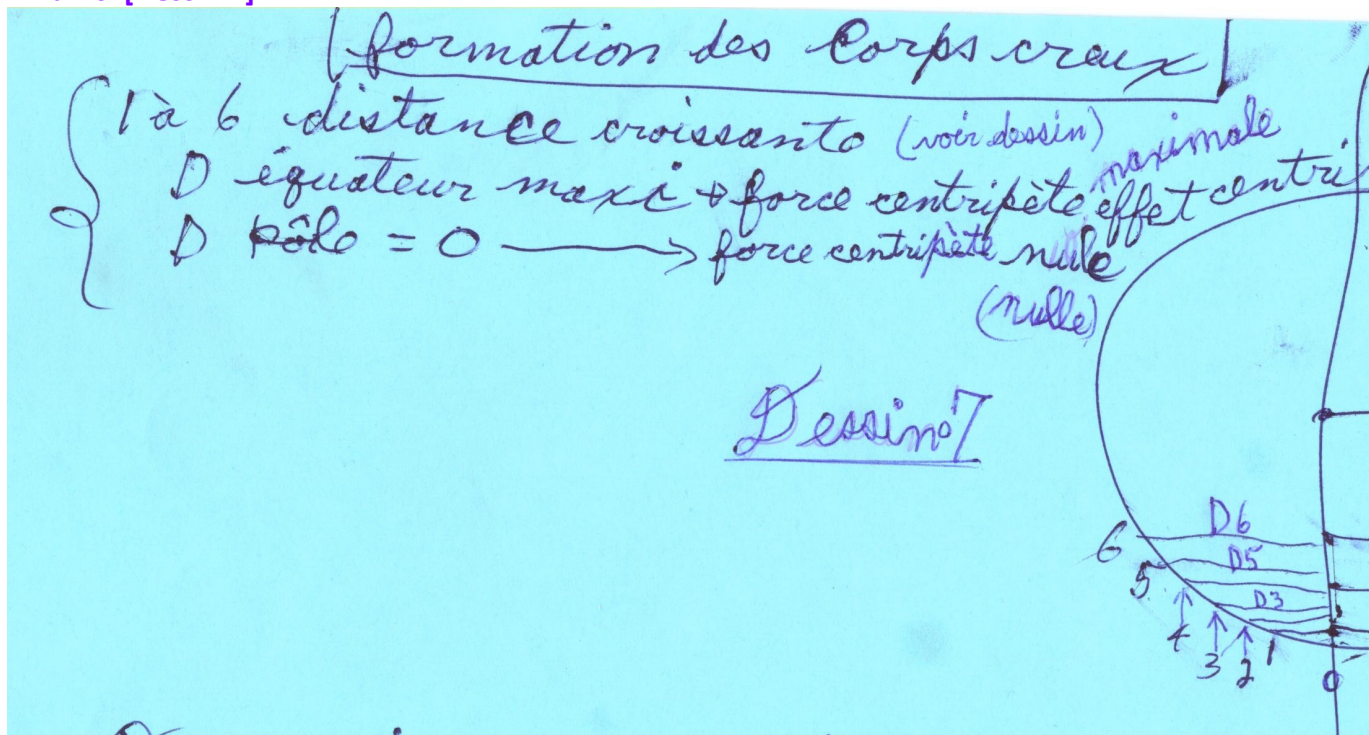 formation des Corps creux
1 à 6 distance croissante (voir dessin)
maximale
D équateur maxi force centripète effet centri
D Pôle = 0 → force centripète nule
(nulle)
Dessin n°7
D6
6
D5
5
D3
4
3
2
1
0